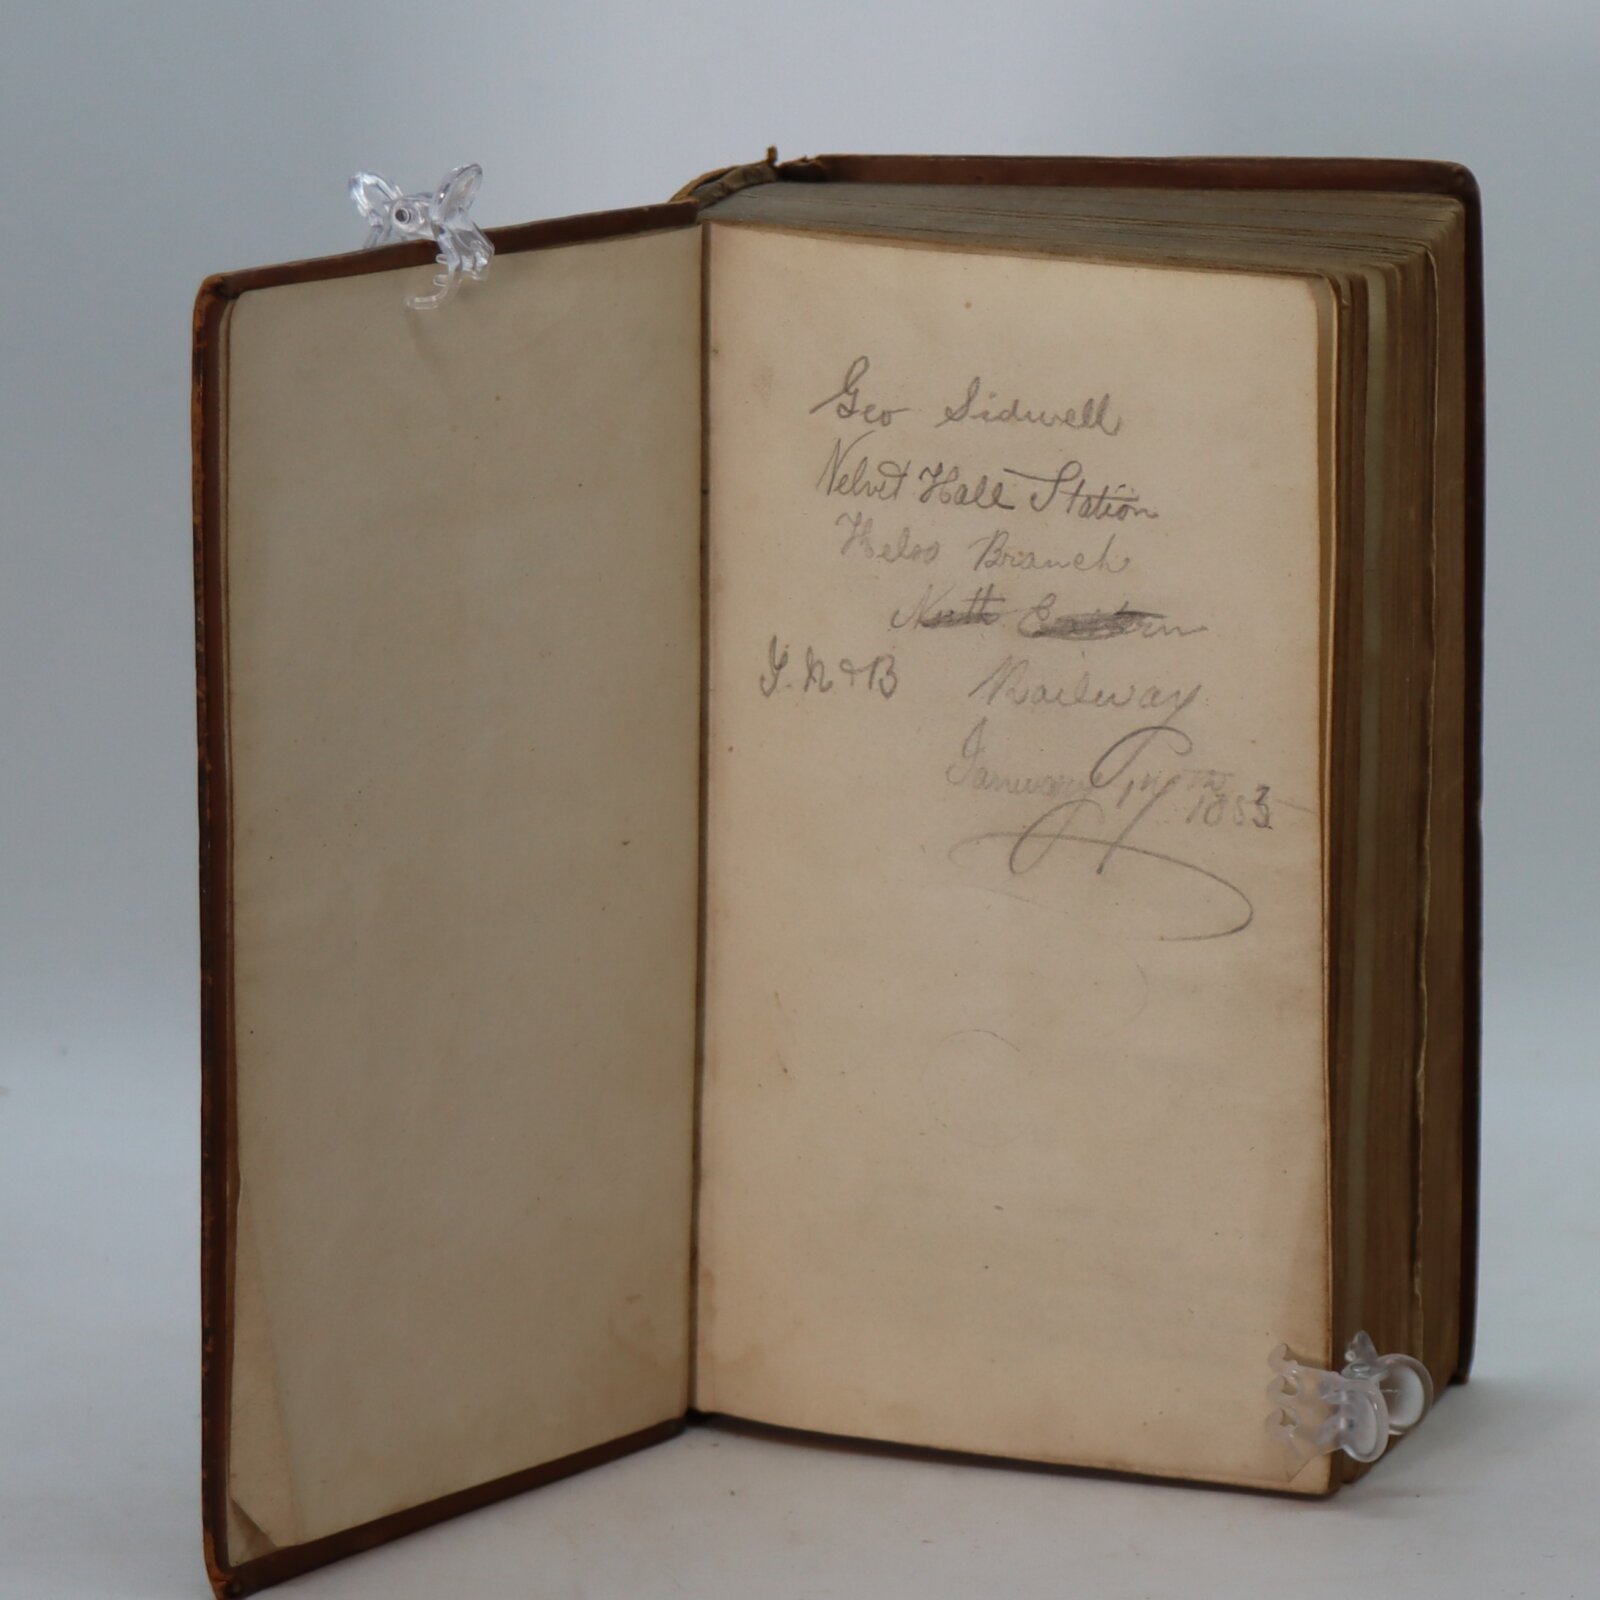 Geo Sidwell
Velvet Hall Station
Kelso Branch
North Eastern
Y. N & B Railway
January 17th
1853